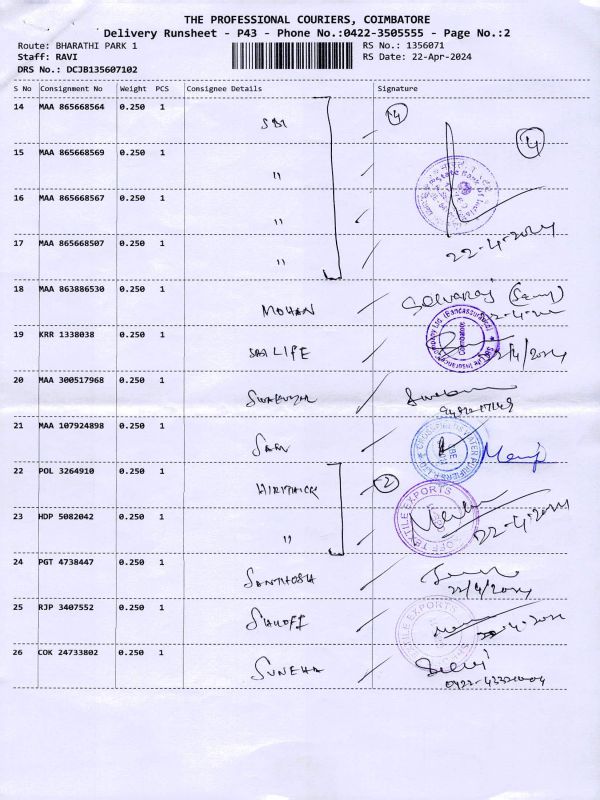 THE PROFESSIONAL COURIERS, COIMBATORE
Delivery Runsheet - P43 - Phone No.:0422-3505555 - Page No.:2
Route: BHARATHI PARK 1 RS No.: 1356071
Staff: RAVI RS Date: 22-Apr-2024
DRS No.: DCJB135607102
S No Consignment No Weight PCS Consignee Details Signature
14 MAA 865668564 0.250 1 SBI 4 4
15 MAA 865668569 0.250 1 "
16 MAA 865668567 0.250 1 "
17 MAA 865668507 0.250 1 " 22-4-2024
18 MAA 863886530 0.250 1 MOHAN Selvaraj
19 KRR 1338038 0.250 1 SBI LIFE 22/4/2024
20 MAA 300517968 0.250 1
21 MAA 107924898 0.250 1
22 POL 3264910 0.250 1 HIRITHICK 2
TEXTILE EXPORTS
23 HDP 5082042 0.250 1 " 22-4-2024
24 PGT 4738447 0.250 1 SANTHOSH
22/4/2024
25 RJP 3407552 0.250 1
TEXTILE EXPORTS
26 COK 24733802 0.250 1 SUNEHA Selvi